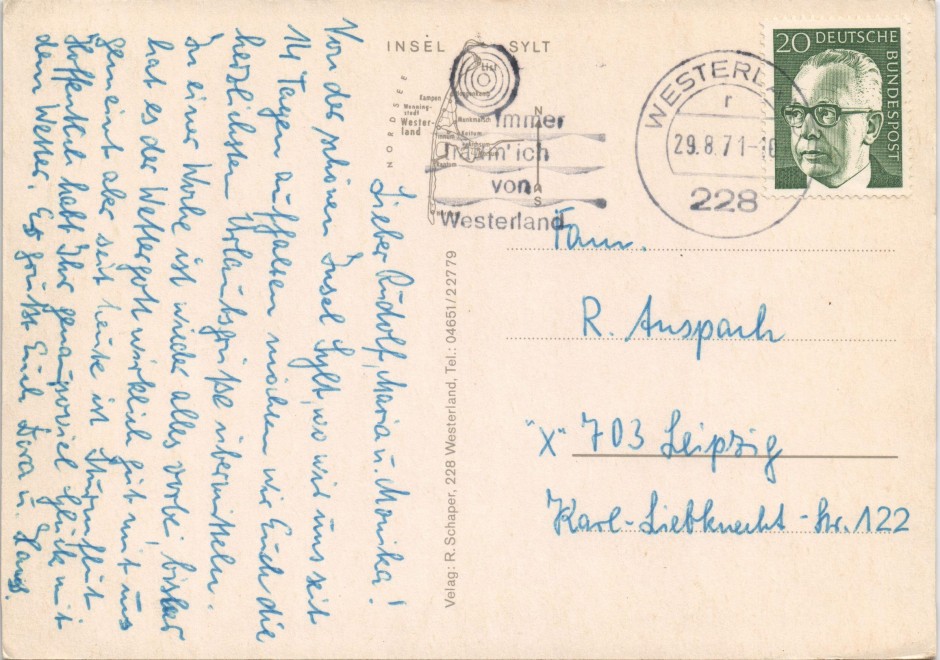 Lieber Rudolf, Maria u. Monika!
Von der schönen Insel Sylt, wo wir uns seit
14 Tagen aufhalten möchten wir Euch die
herzlichsten Urlaubsgrüße übermitteln.
In einer Woche ist wieder alles vorbei, bisher
hat es der Wettergott wirklich gut mit uns
gemeint aber seit heute ist Sturmflut
Hoffentlich habt Ihr genausoviel Glück mit
dem Wetter. Es grüßt Euch Eva u. Hans
INSEL SYLT
List
Kampen
Wenning-
stedt
Wester-
land
Munkmarsch
Keitum
NORDSEE
Immer
nimm' ich
von
Westerland
WESTERLAND
r
29.8.71-16
228
20 DEUTSCHE
BUNDESPOST
Velag: R. Schaper, 228 Westerland, Tel.: 04651/22779
Fam.
R. Anspach
"X" 703 Leipzig
Karl-Liebknecht-Str. 122